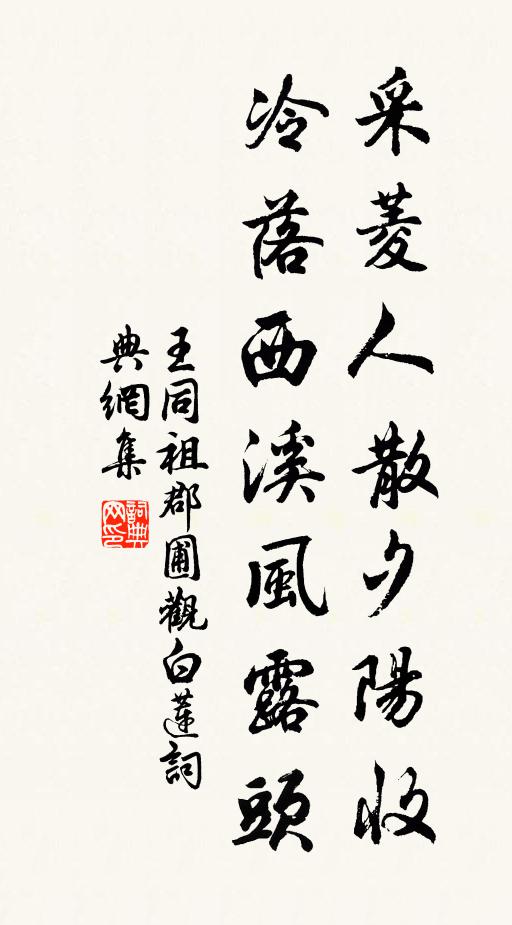 采菱人散夕陽收
冷落西溪風露頭
王同祖郡圃觀白蓮詞
典網集
詞典網印